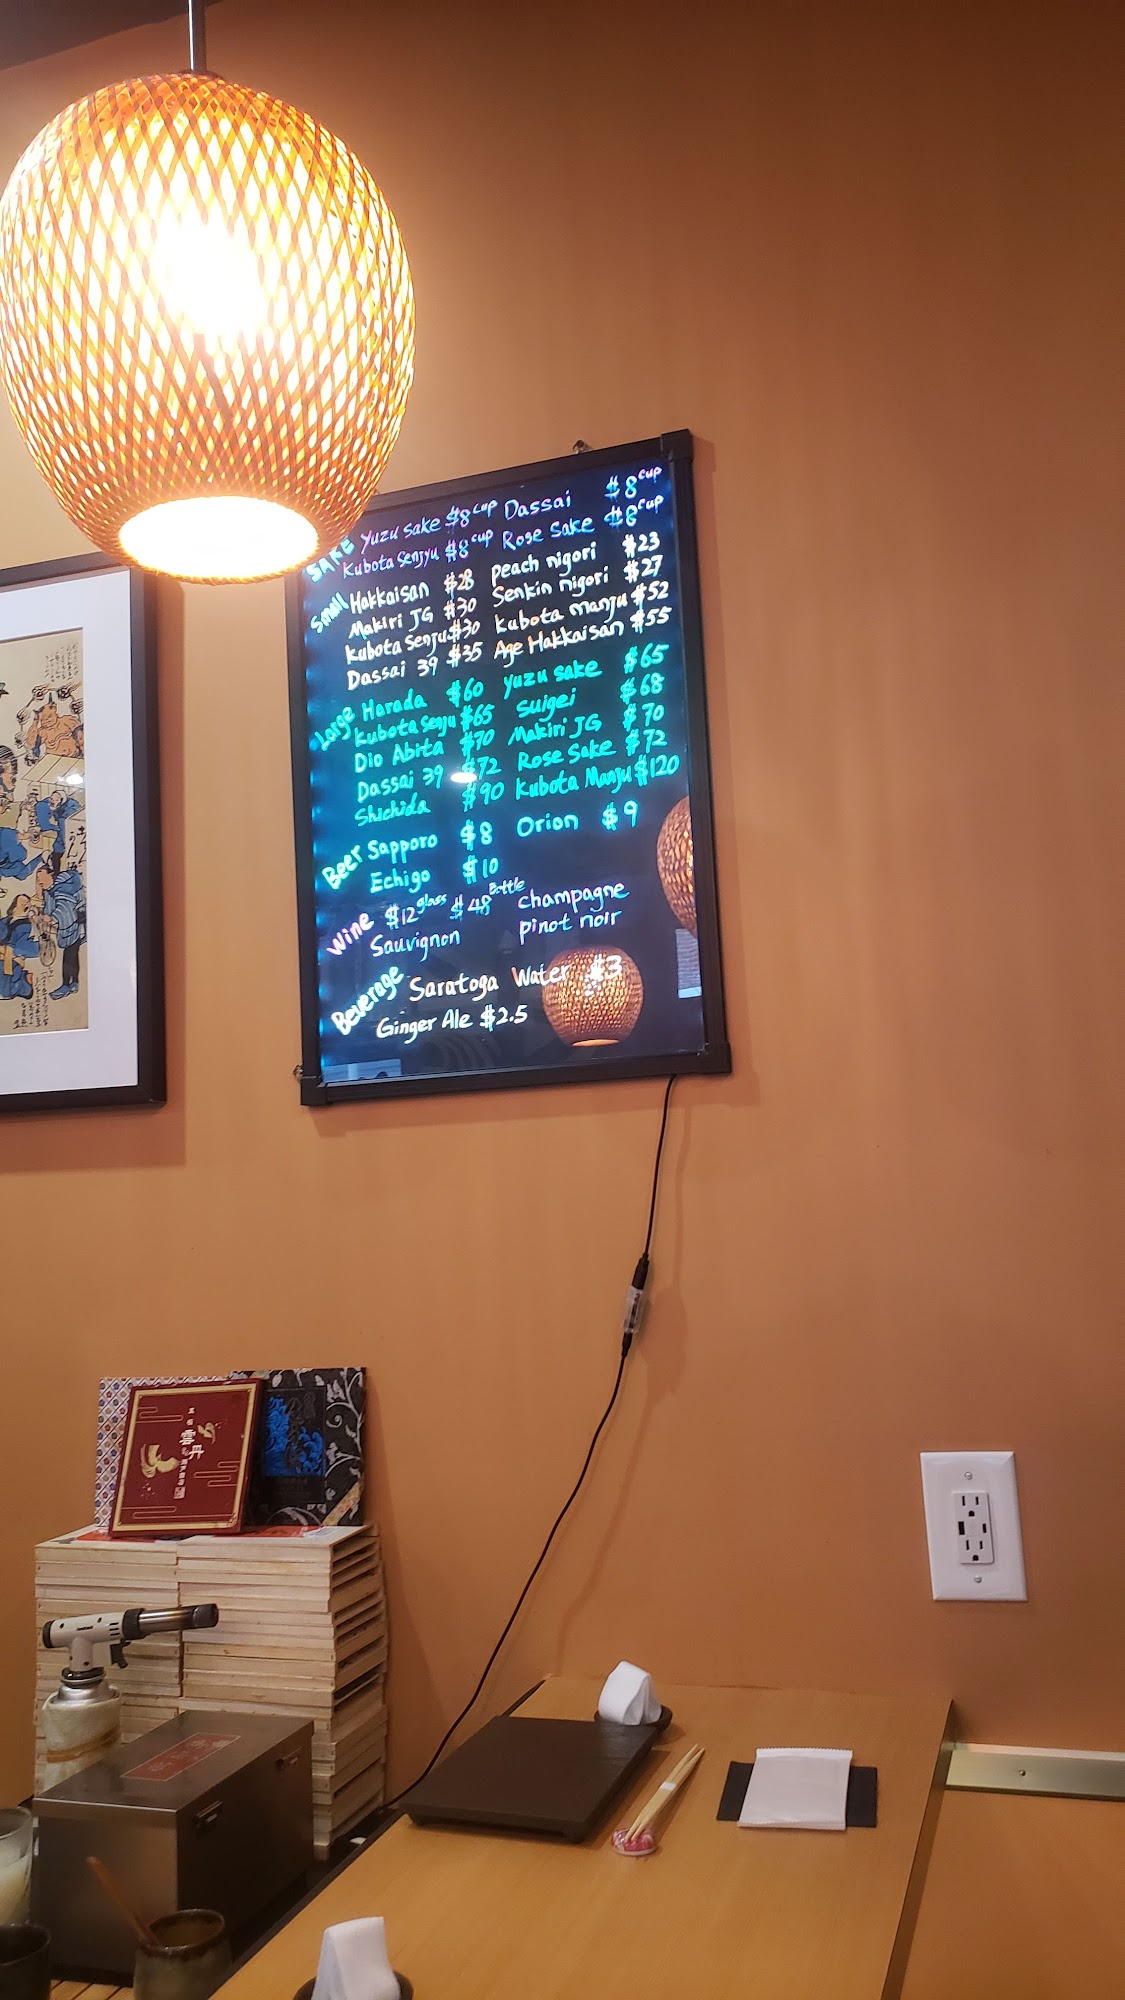 SAKE Yuzu sake $8 cup Dassai $8 cup
Kubota Senjyu $8 cup Rose Sake $8 cup
Small Hakkaisan $28 peach nigori $23
Makiri JG $30 Senkin nigori $27
Kubota Senju $30 Kubota manju $52
Dassai 39 $35 Age Hakkaisan $55
Large Harada $60 yuzu sake $65
Kubota Senju $65 Suigei $68
Dio Abita $70 Makiri JG $70
Dassai 39 $72 Rose Sake $72
Shichida $90 Kubota Manju $120
Beer Sapporo $8 Orion $9
Echigo $10
Wine $12 glass $48 Bottle champagne
Sauvignon pinot noir
Beverage Saratoga Water $3
Ginger Ale $2.5